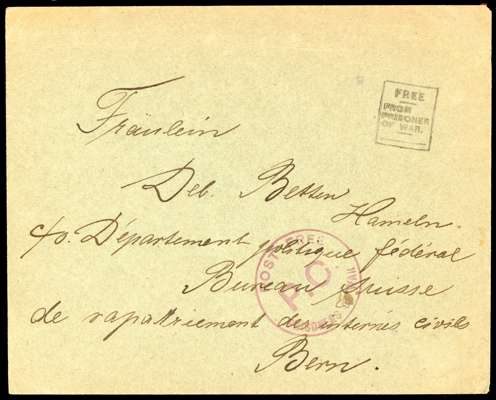 FREE
FROM
PRISONER
OF WAR.
Fräulein
Deb. Betten
Hameln.
c/o. Département politique fédéral
Bureau suisse
de rapatriement des internés civils
Bern.
POST FREE
P.C.